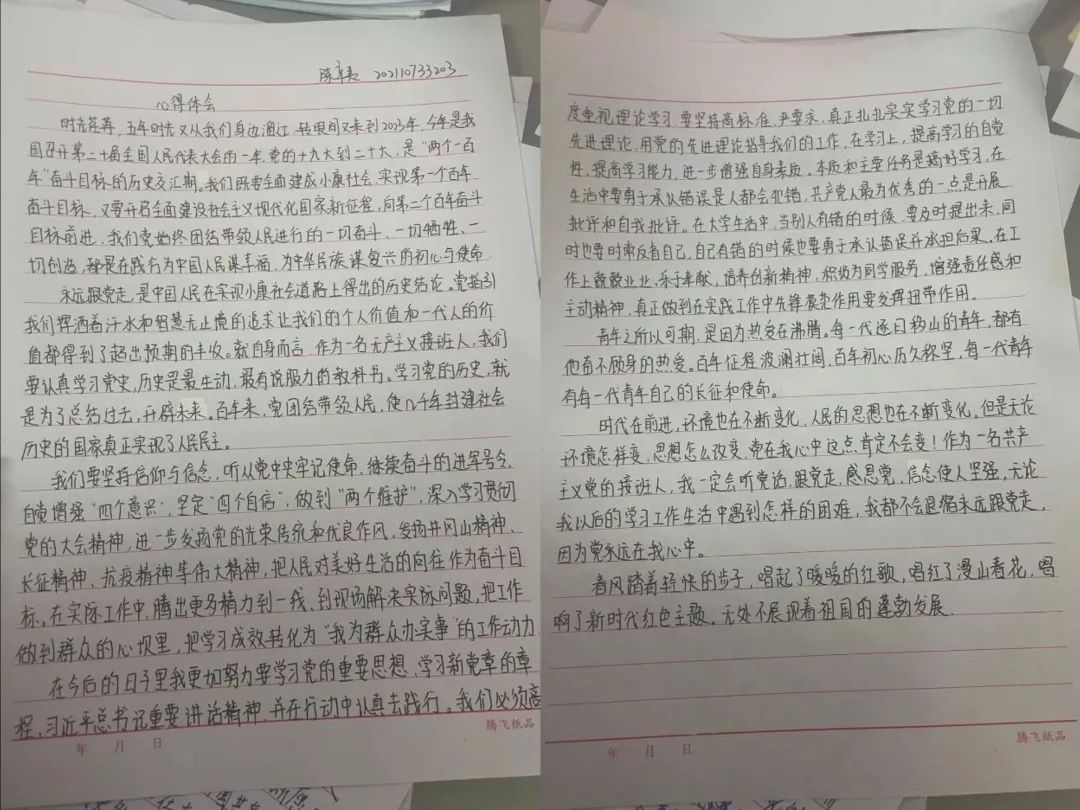 陈 202110733203
心得体会
时光荏苒，五年时光又从我们身边溜过，转眼间又来到2023年，今年是我
国召开第二十届全国人民代表大会的一年，党的十九大到二十大，是“两个一百
年”奋斗目标的历史交汇期。我们既要全面建成小康社会，实现第一个百年
奋斗目标，又要开启全面建设社会主义现代化国家新征程，向第二个百年奋斗
目标前进，我们党始终团结带领人民进行的一切奋斗、一切牺牲、一
切创造，都是在践行为中国人民谋幸福，为中华民族谋复兴的初心与使命.
永远跟党走，是中国人民在实现小康社会道路上得出的历史结论。党指引
我们挥洒着汗水和智慧无止境的追求让我们的个人价值和一代人的价
值都得到了超出预期的丰收。就自身而言，作为一名无产主义接班人，我们
要认真学习党史，历史是最生动、最有说服力的教科书。学习党的历史，就
是为了总结过去，开辟未来。百年来，党团结带领人民，使几千年封建社会
历史的国家真正实现了人民民主。
我们要坚持信仰与信念，听从党中央牢记使命、继续奋斗的进军号令，
自觉增强“四个意识”，坚定“四个自信”，做到“两个维护”，深入学习贯彻
党的大会精神，进一步发扬党的光荣传统和优良作风，发扬井冈山精神、
长征精神、抗疫精神等伟大精神，把人民对美好生活的向往作为奋斗目
标。在实际工作中，腾出更多精力到一线、到现场解决实际问题，把工作
做到群众的心坎里，把学习成效转化为“我为群众办实事”的工作动力.
在今后的日子里我更加努力要学习党的重要思想、学习新党章的章
程、习近平总书记重要讲话精神，并在行动中认真去践行。我们必须高
年 月 日
腾飞纸品
度重视理论学习，要坚持高标准，严要求，真正扎扎实实学习党的一切
先进理论，用党的先进理论指导我们的工作，在学习上，提高学习的自觉
性，提高学习能力，进一步增强自身素质。本质和主要任务是搞好学习，在
生活中要勇于承认错误是人都会犯错，共产党人最为优秀的一点是开展
批评和自我批评。在大学生活中，当别人有错的时候，要及时提出来，同
时也要时常反省自己，自己有错的时候也要勇于承认错误并承担后果。在工
作上兢兢业业，乐于奉献，培养创新精神，积极为同学服务，增强责任感和
主动精神，真正做到在实践工作中先锋表率作用要发挥纽带作用。
青年之所以可期，是因为热爱在沸腾。每一代逐日移山的青年，都有
他奋不顾身的热爱。百年征程波澜壮阔，百年初心历久弥坚，每一代青年
有每一代青年自己的长征和使命。
时代在前进，环境也在不断变化，人民的思想也在不断变化，但是无论
环境怎样变，思想怎么改变，党在我心中这点，肯定不会变！作为一名共产
主义党的接班人，我一定会听党话，跟党走，感恩党，信念使人坚强，无论
我以后的学习工作生活中遇到怎样的困难，我都不会退缩永远跟党走，
因为党永远在我心中。
春风踏着轻快的步子，唱起了暖暖的红歌，唱红了漫山春花，唱
响了新时代红色主题。无处不展现着祖国的蓬勃发展.
年 月 日
腾飞纸品